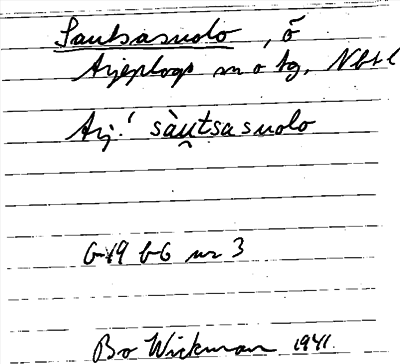 Sautsasuolo, ö
Arjeplogs sn o tg, Nbtl
Arj.! sàu̯tsasuolo
G 19 b6 nr 3
Bo Wickman 1941.